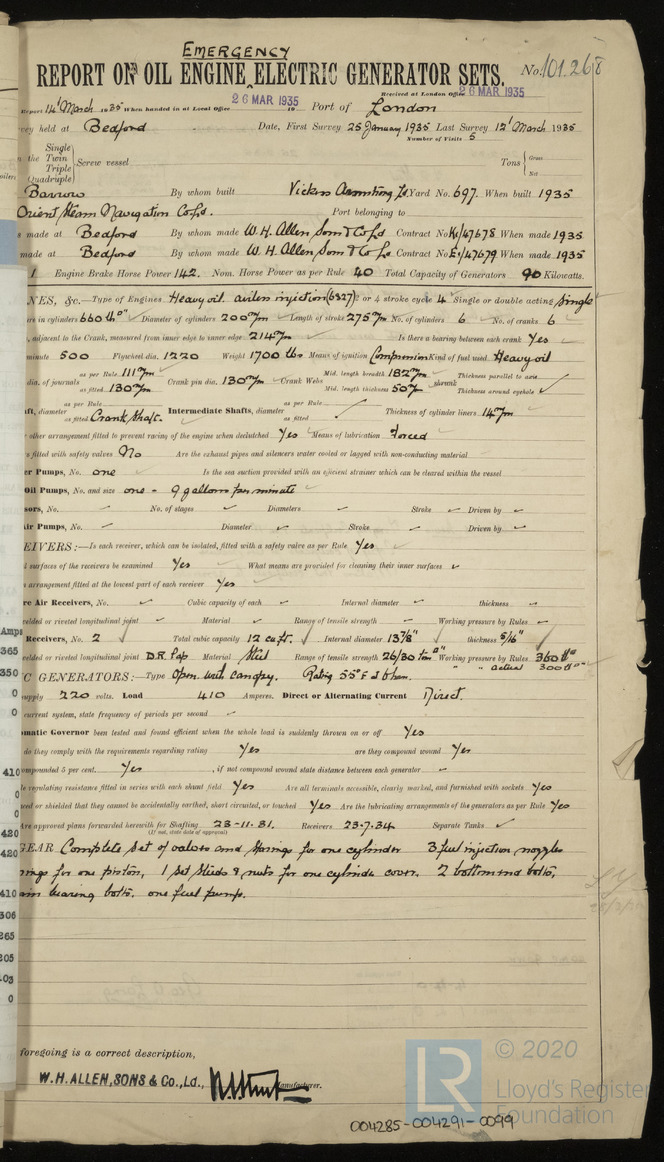 EMERGENCY
REPORT ON OIL ENGINE ELECTRIC GENERATOR SETS. No. 101.268
Received at London Office 26 MAR 1935
Report 14' March 1935 When handed in at Local Office 26 MAR 1935 Port of London
vey held at Bedford Date, First Survey 25 January 1935 Last Survey 12' March 1935
Number of Visits 5
n the Single Twin Triple Quadruple Screw vessel Tons Gross Net
Barrow By whom built Vickers Armstrong Ld Yard No. 697. When built 1935
Orient Steam Navigation Co Ld. Port belonging to
made at Bedford By whom made W. H. Allen Sons & Co Ld Contract No. K1/47678 When made 1935
made at Bedford By whom made W. H. Allen Sons & Co Ld Contract No. E1/47679 When made 1935
1 Engine Brake Horse Power 142. Nom. Horse Power as per Rule 40 Total Capacity of Generators 90 Kilowatts.
NES, &c.—Type of Engines Heavy oil airless injection (6S27) 2 or 4 stroke cycle 4 Single or double acting Single
in cylinders 660 lb□" Diameter of cylinders 200 m/m Length of stroke 275 m/m No. of cylinders 6 No. of cranks 6
, adjacent to the Crank, measured from inner edge to inner edge 214 m/m Is there a bearing between each crank Yes
minute 500 Flywheel dia. 1220 Weight 1700 lbs Means of ignition Compression Kind of fuel used Heavy oil
dia. of journals as per Rule 111 m/m as fitted 130 m/m Crank pin dia. 130 m/m Crank Webs Mid. length breadth 182 m/m Mid. length thickness 50 m/m shrunk Thickness parallel to axis Thickness around eyehole
aft, diameter as per Rule as fitted Crank Shaft. Intermediate Shafts, diameter as per Rule as fitted Thickness of cylinder liners 14 m/m
other arrangement fitted to prevent racing of the engine when declutched Yes Means of lubrication Forced
s fitted with safety valves No Are the exhaust pipes and silencers water cooled or lagged with non-conducting material
er Pumps, No. one Is the sea suction provided with an efficient strainer which can be cleared within the vessel
Oil Pumps, No. and size one - 9 gallons per minute
sors, No. No. of stages Diameters Stroke Driven by
Air Pumps, No. Diameter Stroke Driven by
EIVERS:—Is each receiver, which can be isolated, fitted with a safety valve as per Rule Yes
l surfaces of the receivers be examined Yes What means are provided for cleaning their inner surfaces
n arrangement fitted at the lowest part of each receiver Yes
re Air Receivers, No. Cubic capacity of each Internal diameter thickness
welded or riveted longitudinal joint Material Range of tensile strength Working pressure by Rules
Receivers, No. 2 Total cubic capacity 12 cu ft. Internal diameter 13 7/8" thickness 5/16"
welded or riveted longitudinal joint D.R. Lap Material Steel Range of tensile strength 26/30 ton □" Working pressure by Rules 360 lb□"
" " actual 300 lb□"
C GENERATORS:—Type Open with canopy. Rating 55°F 2 6 hrs.
supply 220 volts. Load 410 Amperes. Direct or Alternating Current Direct.
current system, state frequency of periods per second
omatic Governor been tested and found efficient when the whole load is suddenly thrown on or off Yes
do they comply with the requirements regarding rating Yes are they compound wound Yes
compounded 5 per cent. Yes , if not compound wound state distance between each generator
le regulating resistance fitted in series with each shunt field Yes Are all terminals accessible, clearly marked, and furnished with sockets Yes
ced or shielded that they cannot be accidentally earthed, short circuited, or touched Yes Are the lubricating arrangements of the generators as per Rule Yes
are approved plans forwarded herewith for Shafting 23-11.31. Receivers 23.7.34 Separate Tanks
(If not, state date of approval)
GEAR Complete set of valves and springs for one cylinder 3 fuel injection nozzles
rings for one piston, 1 set studs & nuts for one cylinder cover. 2 bottom end bolts,
ain bearing bolts, one fuel pump.
foregoing is a correct description,
W. H. ALLEN, SONS & Co., Ld., Manufacturer.
004285-004291-0099
LR
© 2020
Lloyd's Register
Foundation
Amps
365
350
0
0
410
0
420
420
410
306
265
205
103
0